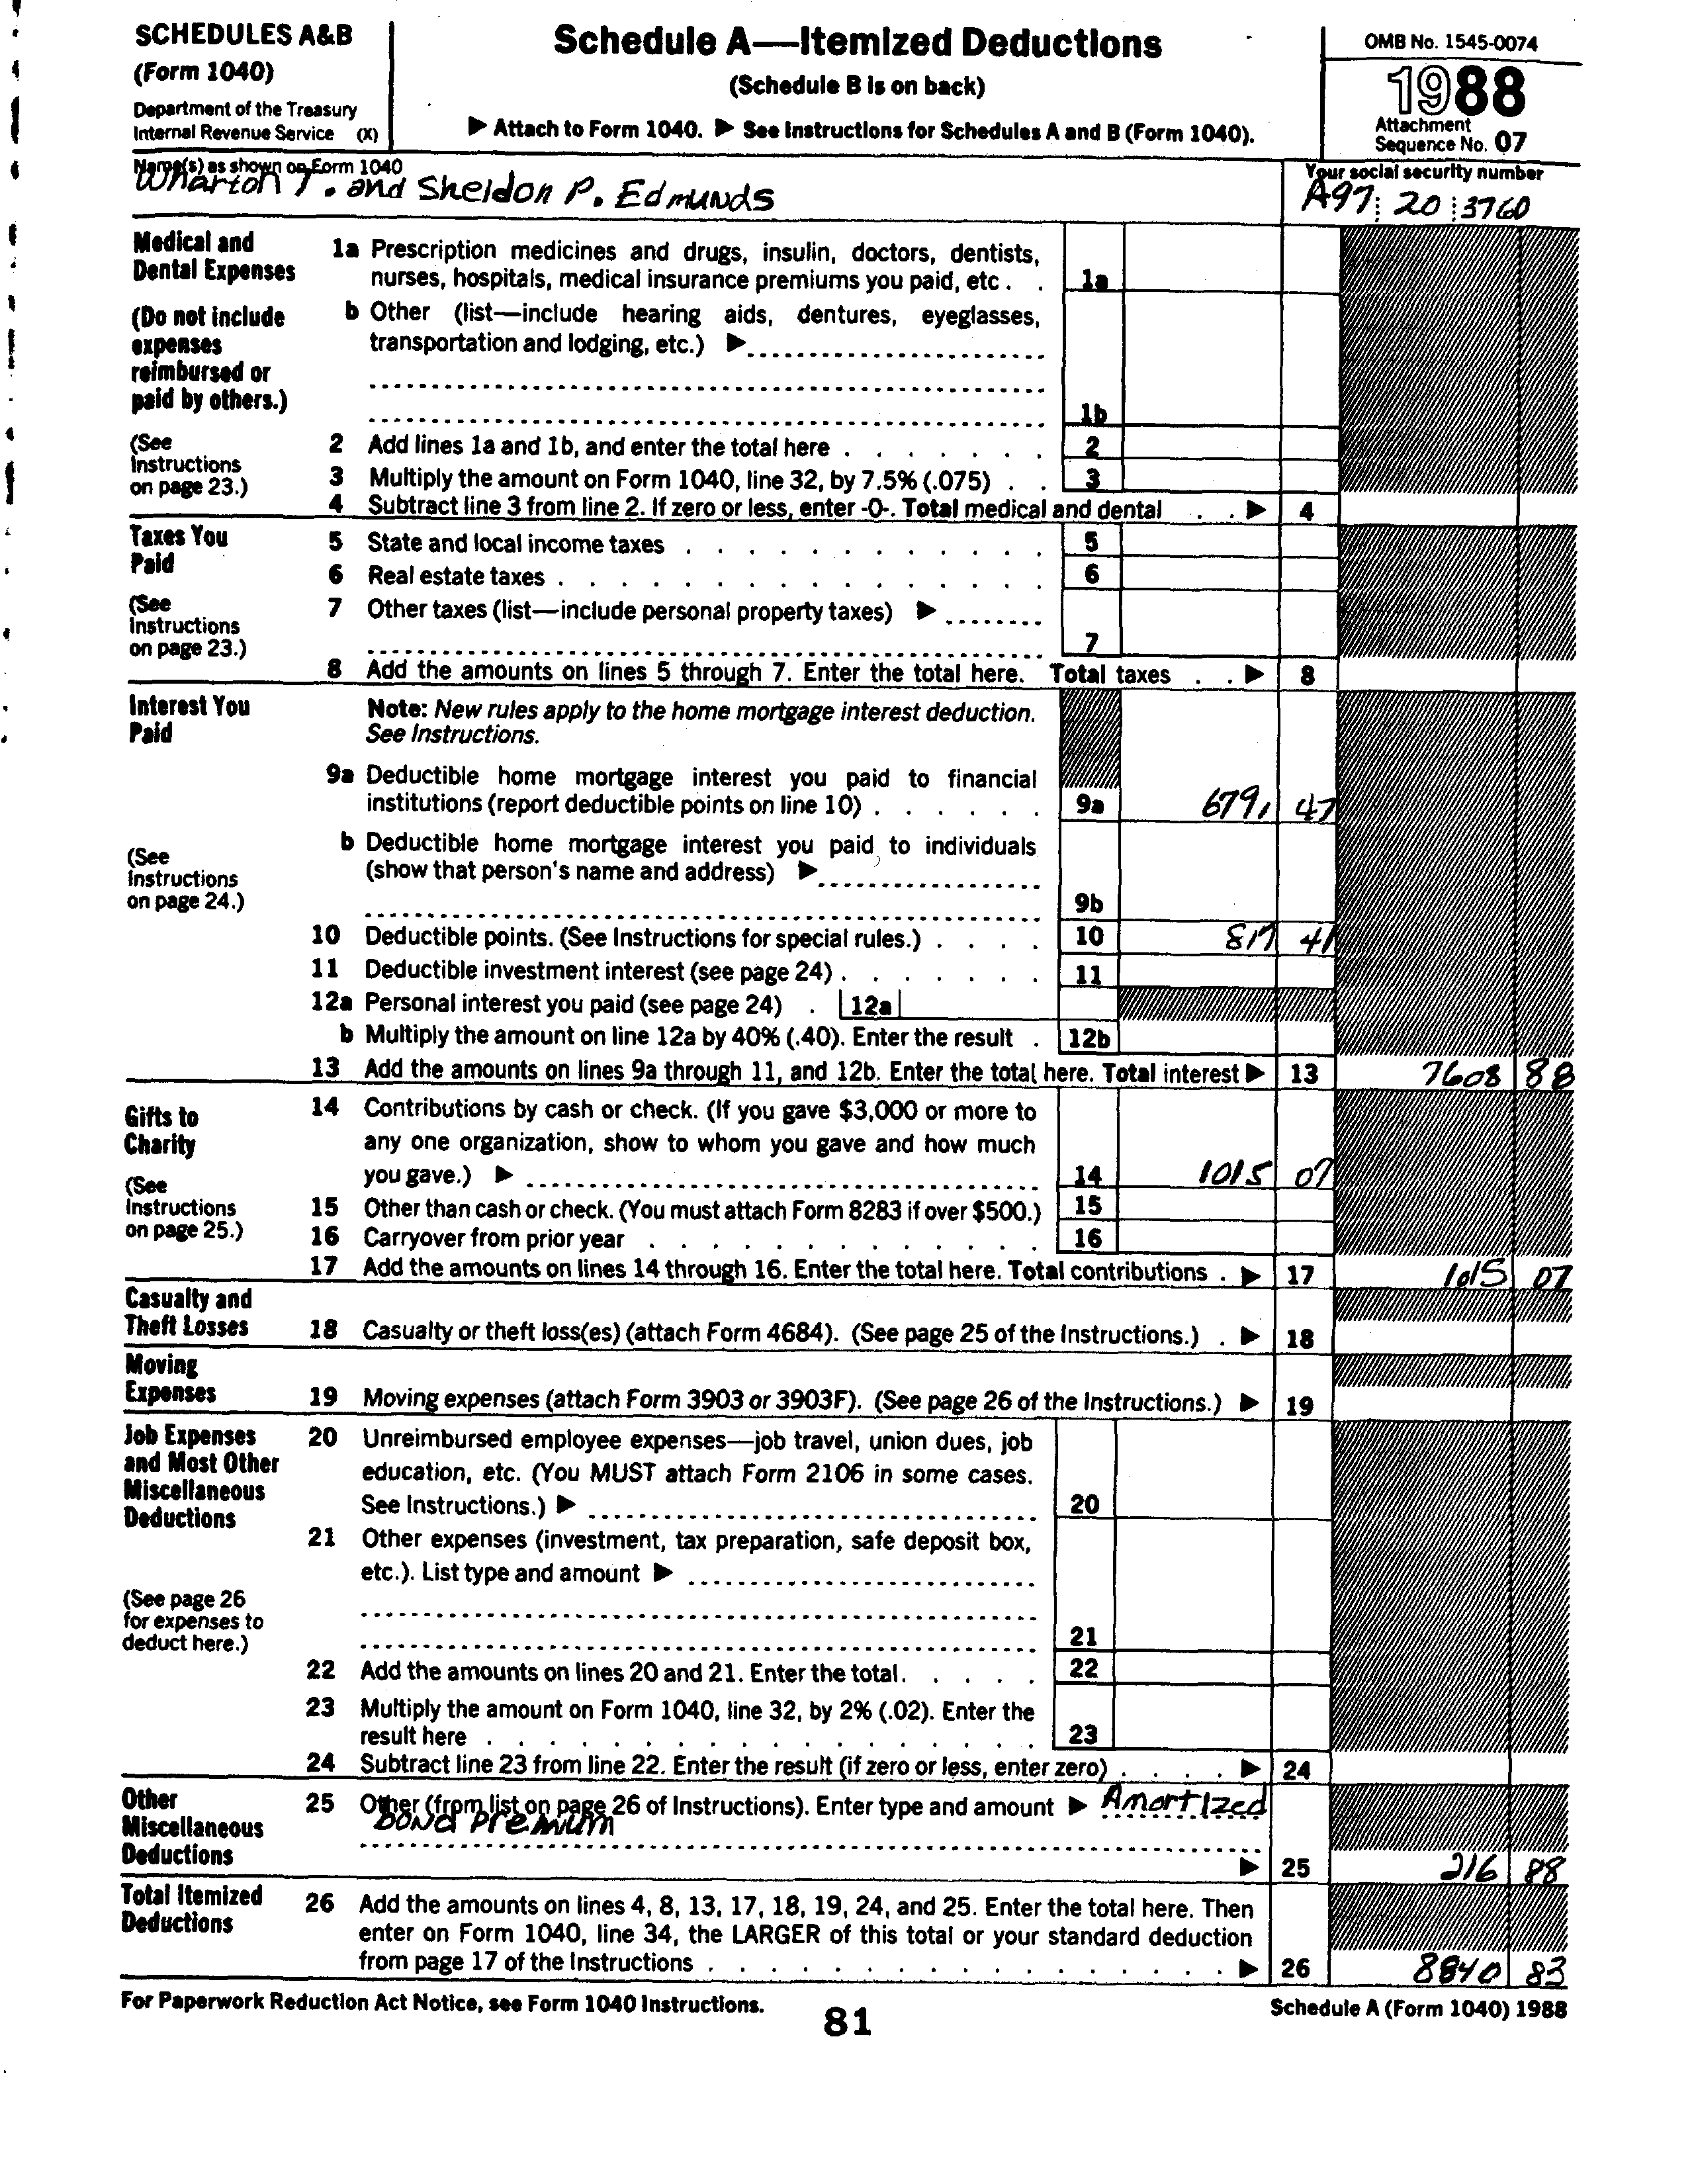 SCHEDULES A&B
(Form 1040)
Department of the Treasury
Internal Revenue Service (X)
Schedule A—Itemized Deductions
(Schedule B is on back)
▶ Attach to Form 1040. ▶ See Instructions for Schedules A and B (Form 1040).
OMB No. 1545-0074
1988
Attachment
Sequence No. 07
Name(s) as shown on Form 1040
Wharton T. and Sheldon P. Edmunds
Your social security number
A97 20 3760
Medical and
Dental Expenses
(Do not include
expenses
reimbursed or
paid by others.)
(See
Instructions
on page 23.)
1a Prescription medicines and drugs, insulin, doctors, dentists,
nurses, hospitals, medical insurance premiums you paid, etc . . 1a
b Other (list—include hearing aids, dentures, eyeglasses,
transportation and lodging, etc.) ▶
1b
2 Add lines 1a and 1b, and enter the total here . . . . . . . 2
3 Multiply the amount on Form 1040, line 32, by 7.5% (.075) . . 3
4 Subtract line 3 from line 2. If zero or less, enter -0-. Total medical and dental . . ▶ 4
Taxes You
Paid
(See
Instructions
on page 23.)
5 State and local income taxes . . . . . . . . . . . . 5
6 Real estate taxes . . . . . . . . . . . . . . . . 6
7 Other taxes (list—include personal property taxes) ▶
7
8 Add the amounts on lines 5 through 7. Enter the total here. Total taxes . . ▶ 8
Interest You
Paid
(See
Instructions
on page 24.)
Note: New rules apply to the home mortgage interest deduction.
See Instructions.
9a Deductible home mortgage interest you paid to financial
institutions (report deductible points on line 10) . . . . . . 9a 6791 47
b Deductible home mortgage interest you paid to individuals
(show that person's name and address) ▶
9b
10 Deductible points. (See Instructions for special rules.) . . . . 10 817 41
11 Deductible investment interest (see page 24) . . . . . . . 11
12a Personal interest you paid (see page 24) . 12a
b Multiply the amount on line 12a by 40% (.40). Enter the result . 12b
13 Add the amounts on lines 9a through 11, and 12b. Enter the total here. Total interest ▶ 13 7608 88
Gifts to
Charity
(See
Instructions
on page 25.)
14 Contributions by cash or check. (If you gave $3,000 or more to
any one organization, show to whom you gave and how much
you gave.) ▶ 14 1015 07
15 Other than cash or check. (You must attach Form 8283 if over $500.) 15
16 Carryover from prior year . . . . . . . . . . . . . 16
17 Add the amounts on lines 14 through 16. Enter the total here. Total contributions . ▶ 17 1015 07
Casualty and
Theft Losses
18 Casualty or theft loss(es) (attach Form 4684). (See page 25 of the Instructions.) . ▶ 18
Moving
Expenses
19 Moving expenses (attach Form 3903 or 3903F). (See page 26 of the Instructions.) ▶ 19
Job Expenses
and Most Other
Miscellaneous
Deductions
(See page 26
for expenses to
deduct here.)
20 Unreimbursed employee expenses—job travel, union dues, job
education, etc. (You MUST attach Form 2106 in some cases.
See Instructions.) ▶ 20
21 Other expenses (investment, tax preparation, safe deposit box,
etc.). List type and amount ▶
21
22 Add the amounts on lines 20 and 21. Enter the total. . . . . 22
23 Multiply the amount on Form 1040, line 32, by 2% (.02). Enter the
result here . . . . . . . . . . . . . . . . . . 23
24 Subtract line 23 from line 22. Enter the result (if zero or less, enter zero) . . . . ▶ 24
Other
Miscellaneous
Deductions
25 Other (from list on page 26 of Instructions). Enter type and amount ▶ Amortized
Bond Premium
▶ 25 216 88
Total Itemized
Deductions
26 Add the amounts on lines 4, 8, 13, 17, 18, 19, 24, and 25. Enter the total here. Then
enter on Form 1040, line 34, the LARGER of this total or your standard deduction
from page 17 of the Instructions . . . . . . . . . . . . . . . . . ▶ 26 8840 83
For Paperwork Reduction Act Notice, see Form 1040 Instructions.
81
Schedule A (Form 1040) 1988